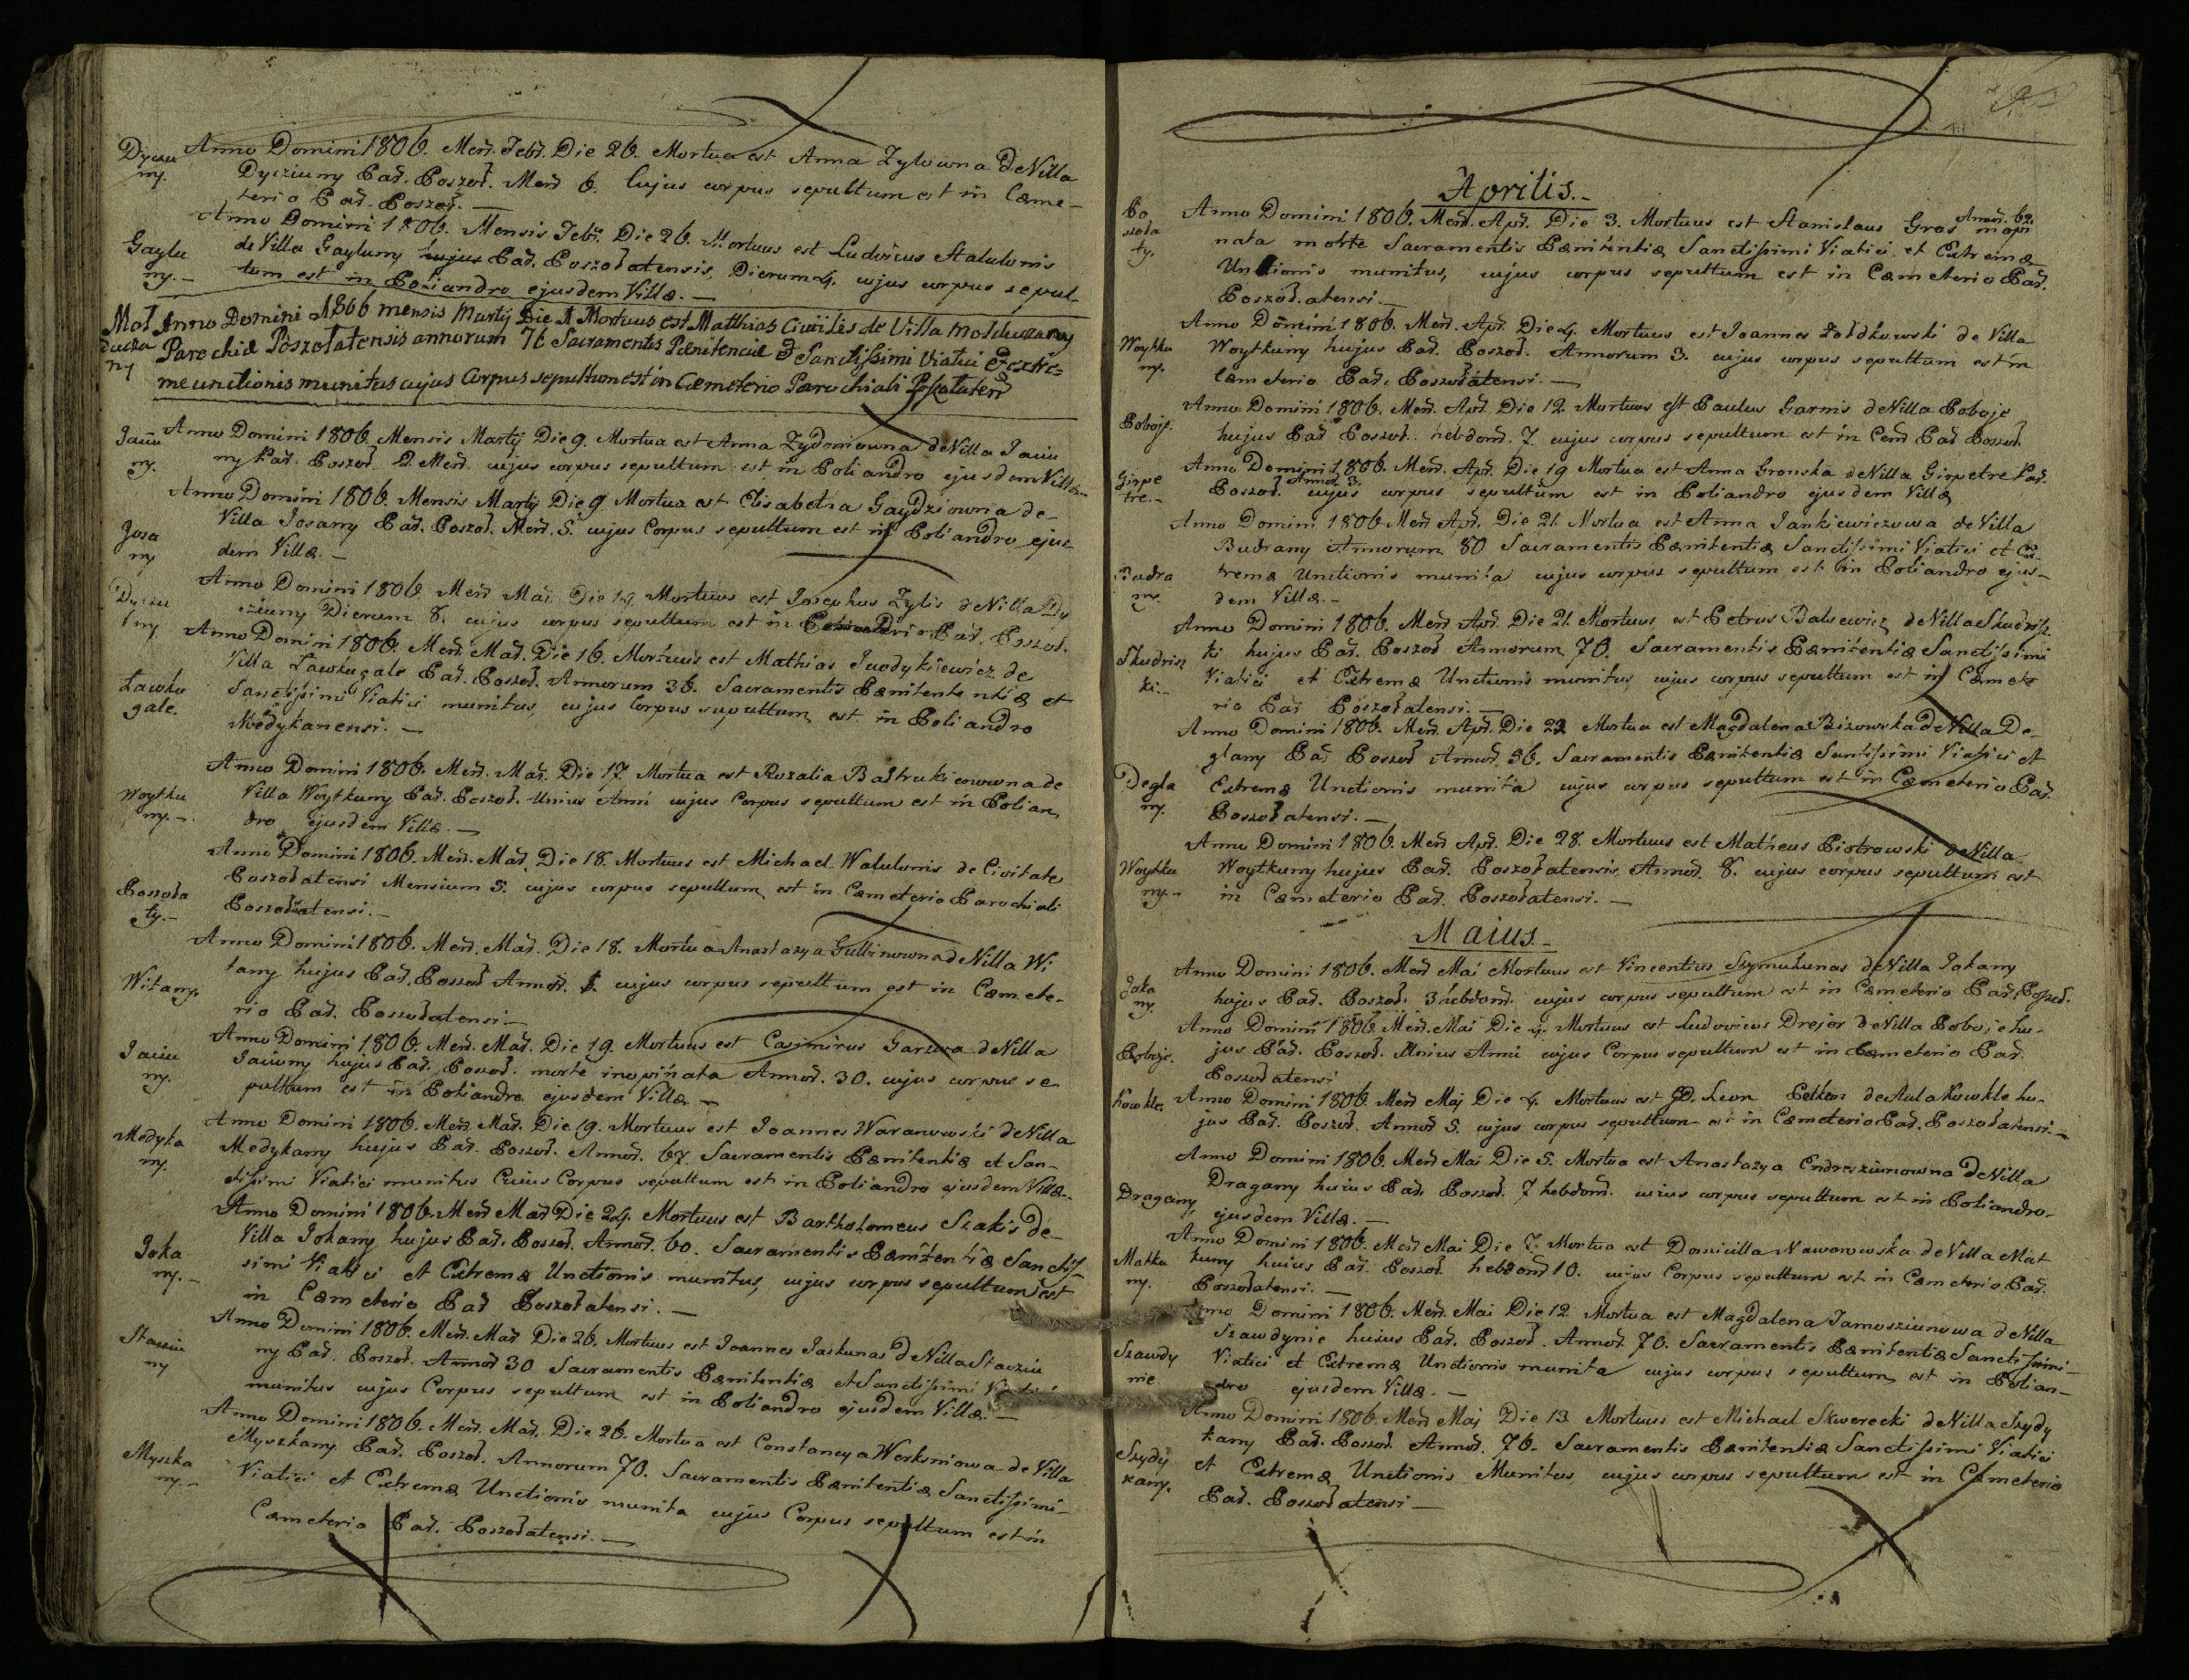 Dyczu
ny.
Anno Domini 1806. Menš. Febr. Die 26. Mortua est Anna Zylowna de Villa
Dycziuny Par. Poszoł. Menš 6. Cujus corpus sepultum est in Cæme-
terio Par. Poszoł. —
Gaylu
ny. -
Anno Domini 1806. Mensis Febr. Die 26. Mortuus est Ludovicus Stalulonis
de Villa Gayluny hujus Par. Poszołatensis. Dierum 4. cujus corpus sepul-
tum est in Poliandro ejusdem Villæ. —
Mol
ducza
ny
Anno Domini 1806 mensis Martij Die 1 Mortuus est Matthias Civilis de Villa Molduczany
Parochiæ Poszołatensis annorum 76 Sacramentis Pænitenciæ et Sanctissimi Viatici et extre=
me unctionis munitus cujus Corpus sepultum est in Cæmeterio Parochiali
Jaciu
ny.
Anno Domini 1806. Mensis Martij Die 9. Mortua est Anna Zydoniowna de Villa Jaciu
ny Par. Poszoł. 2. Menš. cujus corpus sepultum est in Poliandro ejusdem Villæ.
Josa
ny
Anno Domini 1806. Mensis Martij Die 9 Mortua est Elisabetha Gaydziowna de
Villa Josany Par. Poszoł. Menš. 5. cujus Corpus sepultum est in Poliandro ejus
dem Villæ. —
Dyczu
ny
Anno Domini 1806. Menš Mar. Die 14 Mortuus est Josephus Zylis de Villa Dy
cziuny Dierum 8. cujus corpus sepultum est in Par. Poszoł.
Ławku
gale.
Anno Domini 1806. Menš. Mar. Die 16. Mortuus est Mathias Juodykiewicz de
Villa Ławkugale Par. Poszoł. Annorum 36. Sacramentis Pænitente ntiæ et
Sanctissimi Viatici munitus, cujus Corpus sepultum est in Poliandro
Medykanensi. —
Woytku
ny. -
Anno Domini 1806. Menš. Mar. Die 17. Mortua est Rozalia Bałtrukiewowna de
Villa Woytkuny Par. Poszoł. Unius Anni cujus Corpus sepultum est in Polian
dro ejusdem Villæ. —
Poszoła
ty. -
Anno Domini 1806. Menš. Mar. Die 18. Mortuus est Michael Walulonis de Civitate
Poszołatensi Mensium 5. cujus corpus sepultum est in Cæmeterio Parochiali
Poszołatensi. —
Witany.
Anno Domini 1806. Menš. Mar. Die 18. Mortua Anastazya Gulbinowna de Villa Wi
tany hujus Par. Poszoł Annor. 1. cujus corpus sepultum est in Cæmete-
rio Par. Poszołatensi. —
Jaciu
ny.
Anno Domini 1806. Menš. Mar. Die 19. Mortuus est Casimirus Garzwa de Villa
Jaciuny hujus Par. Poszoł. morte inopinata Annor. 30. cujus corpus se
pultum est in Poliandro ejusdem Villæ —
Medyka
ny.
Anno Domini 1806. Menš. Mar. Die 19. Mortuus est Joannes Waranowski de Villa
Medykany hujus Par. Poszoł. Annor. 67. Sacramentis Pænitentiæ et San-
ctissimi Viatici munitus Cuius Corpus sepultum est in Poliandro ejusdem Villæ.
Joka
ny. -
Anno Domini 1806. Menš Mar Die 24. Mortuus est Bartholomeus Szakis de
Villa Jokany hujus Par. Poszoł. Annor. 60. Sacramentis Pænitentiæ Sanctis
simi Viatici et Extremæ Unctionis munitus, cujus corpus sepultum est
in Cæmeterio Par Poszołatensi. —
Stacziu
ny
Anno Domini 1806. Menš. Mar Die 26. Mortuus est Joannes Jaskunas de Villa Stacziu
ny Par. Poszoł. Annor 30 Sacramentis Pænitentiæ et Sanctissimi Viatici
munitus cujus Corpus sepultum est in Poliandro ejusdem Villæ. —
Myszka
ny. -
Anno Domini 1806. Menš. Mar. Die 26. Mortua est Constancya Werksniowa de Villa
Myszkany Par. Poszoł. Annorum 70. Sacramentis Pænitentiæ Sanctissimi
Viatici et Extremæ Unctionis munita cujus Corpus sepultum est in
Cæmeterio Par. Poszołatensi. —
Aprilis. -
Po
szoła
ty.
Anno Domini 1806. Menš. Apr. Die 3. Mortuus est Stanislaus Gros Annor. 62. inopi
nata morte Sacramentis Pænitentiæ Sanctissimi Viatici et Extremæ
Unctionis munitus, cujus corpus sepultum est in Cæmeterio Par.
Poszoł.atensi. —
Woytku
ny.
Anno Domini 1806. Menš. Apr. Die 4. Mortuus est Joannes Zołdkowski de Villa
Woytkuny hujus Par. Poszoł. Annorum 3. cujus corpus sepultum est in
Cæmeterio Par. Poszołatensi. —
Poboje.
Anno Domini 1806. Menš. Apr. Die 12. Mortuus est Paulus Garnis de Villa Poboje
hujus Par Poszoł. hebdom. 7. cujus corpus sepultum est in Cem Par Poszoł.
Girpe
tre. -
Anno Domini 1806. Menš. Apr. Die 19 Mortua est Anna Gronska de Villa Girpetre Par.
Poszoł. Annor 3. cujus corpus sepultum est in Poliandro ejusdem Villæ
Budra
ny.
Anno Domini 1806 Menš Apr. Die 21. Mortua est Anna Jankiewiczowa de Villa
Budrany Annorum 80 Sacramentis Pænitentiæ Sanctissimi Viatici et Ex-
tremæ Unctionis munita cujus corpus sepultum est in Poliandro ejus-
dem Villæ. -
Skudrisz
ki. -
Anno Domini 1806. Menš Apr. Die 21. Mortuus est Petrus Balsewicz de Villa Skudrisz
ki hujus Par. Poszoł Annorum 70. Sacramentis Pænitentiæ Sanctissimi
Viatici et Extremæ Unctionis munitus, cujus corpus sepultum est in Cæmete
rio Par Poszołatensi. —
Degla
ny.
Anno Domini 1806. Menš. Apr. Die 22 Mortua est Magdalena Bizowska de Villa De-
glany Par Poszoł Annor. 36. Sacramentis Pænitentiæ Sanctissimi Viatici et
Extremæ Unctionis munita cujus corpus sepultum est in Cæmeterio Par.
Poszołatensi. —
Woytku
ny. -
Anno Domini 1806. Menš Apr. Die 28. Mortuus est Matheus Piotrowski de Villa
Woytkuny hujus Par. Poszołatensis Annor. 8. cujus corpus sepultum est
in Cæmeterio Par. Poszołatensi. —
Maius. -
Joka
ny.
Anno Domini 1806. Menš Mai Mortuus est Vincentius Szymukunas de Villa Jokany
hujus Par. Poszoł. 3 hebdom. cujus corpus sepultum est in Cæmeterio Par. Poszoł.
Poboje.
Anno Domini 1806. Menš. Mai Die 4. Mortuus est Ludovicus Drejer de Villa Poboje hu-
jus Par. Poszoł. Unius Anni cujus Corpus sepultum est in Cæmeterio Par.
Poszołatensi
Kowkle.
Anno Domini 1806. Menš Maj Die 4. Mortuus est Leon de Aula Kowkle hu-
jus Par. Poszoł. Annor 5. cujus corpus sepultum est in Cæmeterio Par. Poszołatensi. —
Dragany
Anno Domini 1806. Menš Mai Die 5. Mortua est Anastazya Endreziunowna de Villa
Dragany huius Par. Poszoł. 7 hebdom. cuius corpus sepultum est in Poliandro
ejusdem Villæ. —
Matku
ny.
Anno Domini 1806. Menš Mai Die 7. Mortua est Domicilla Naworowska de Villa Mat
kuny huius Par. Poszoł. hebdom 10. cujus Corpus sepultum est in Cæmeterio Par.
Poszołatensi. —
Szawdy
nie
Anno Domini 1806. Menš. Mai Die 12 Mortua est Magdalena Jamosziunowa de Villa
Szawdynie huius Par. Poszoł. Annor 70. Sacramentis Pænitentiæ Sanctissimi
Viatici et Extremæ Unctionis munita cujus corpus sepultum est in Polian-
dro ejusdem Villæ. —
Szydy
kany.
Anno Domini 1806. Menš Maj Die 13 Mortuus est Michael Skwerecki de Villa Szydy
kany Par. Poszoł. Annor. 76. Sacramentis Pænitentiæ Sanctissimi Viatici
et Extremæ Unctionis Munitus, cujus corpus sepultum est in Cæmeterio
Par. Poszołatensi —